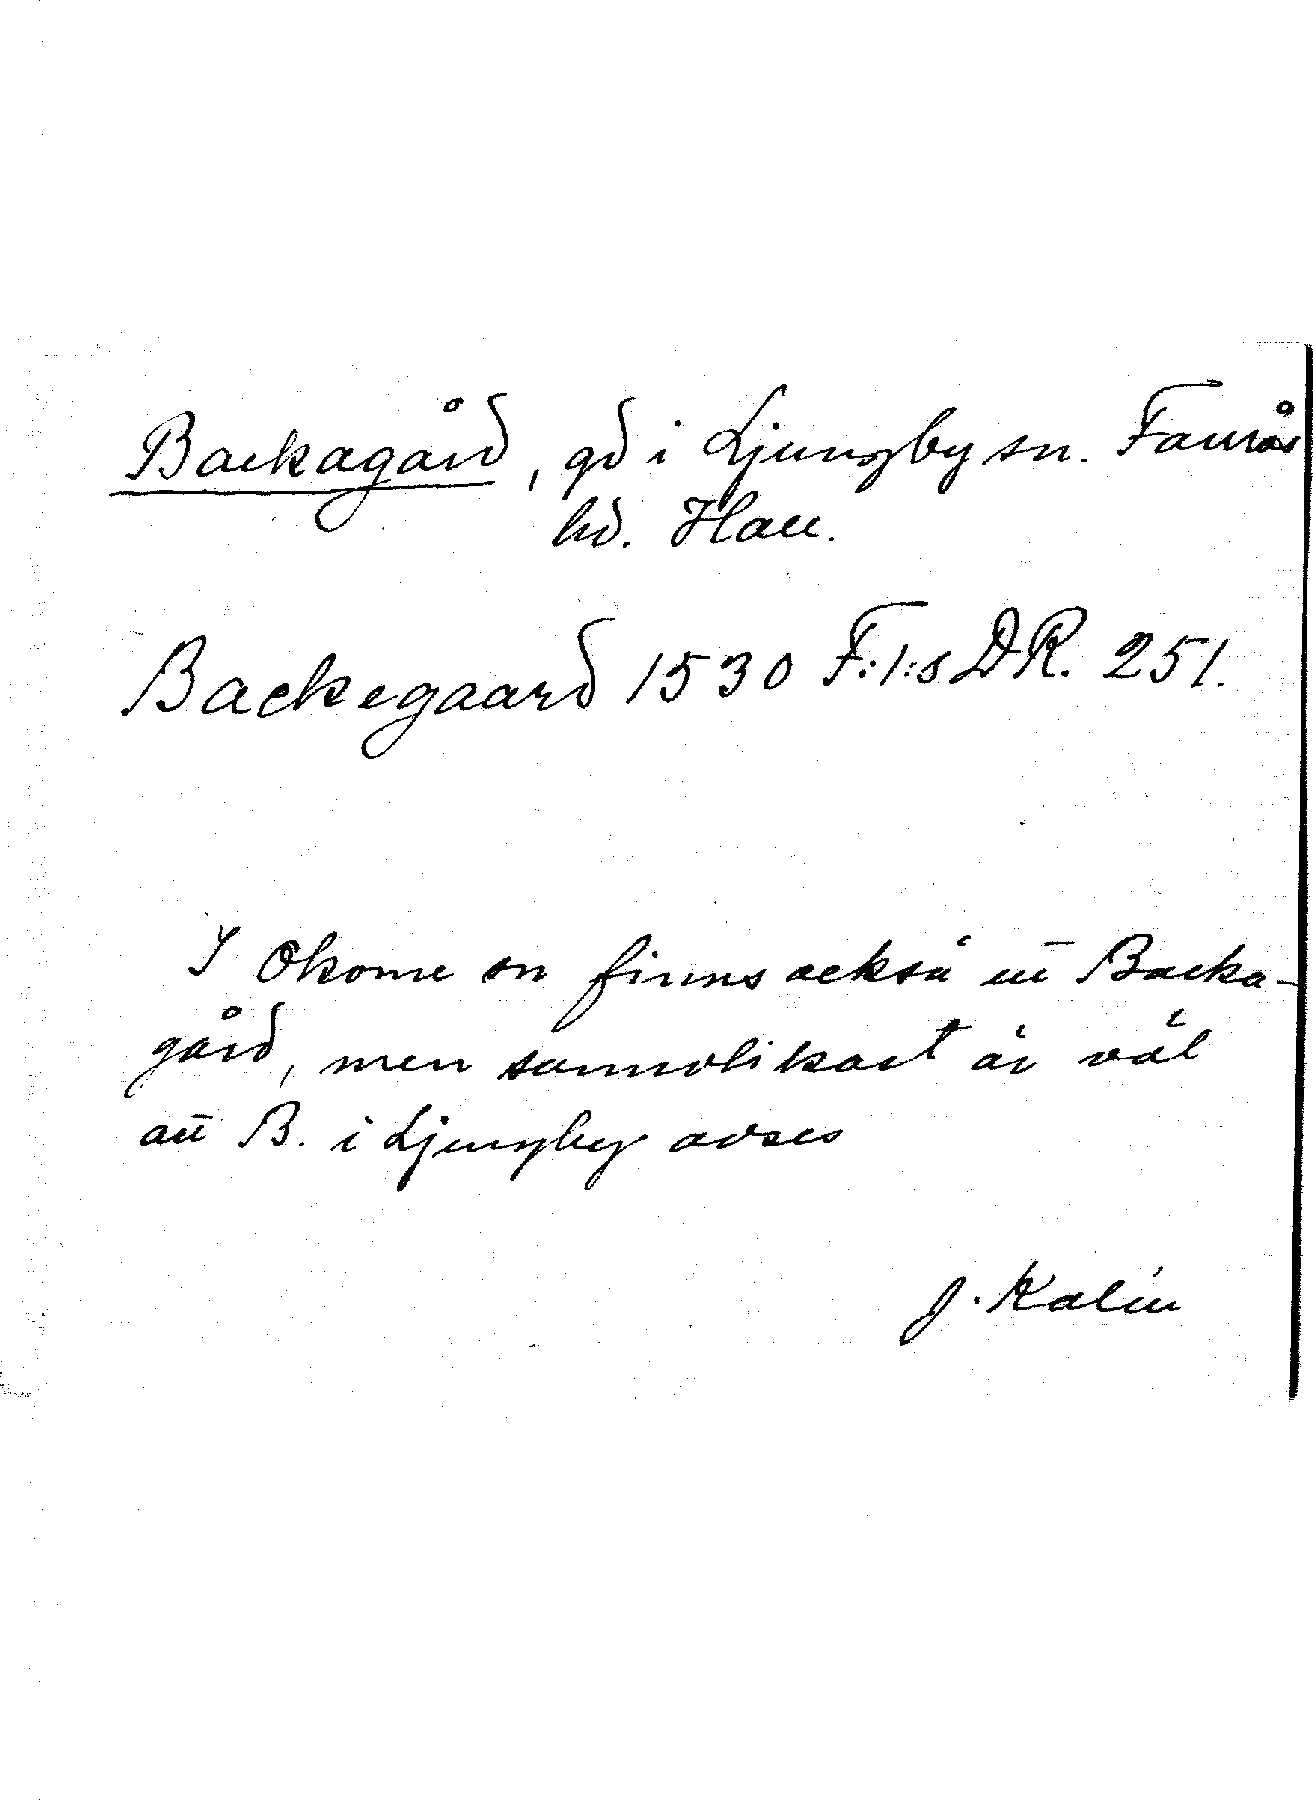 Backagård, gd i Ljungby sn. Faurås
hd. Hall.
Backegaard 1530 F:1:s DR. 251.
I Okome sn finns också ett Backa-
gård, men sannolikast är väl
att B. i Ljungby avses
J. Kalén